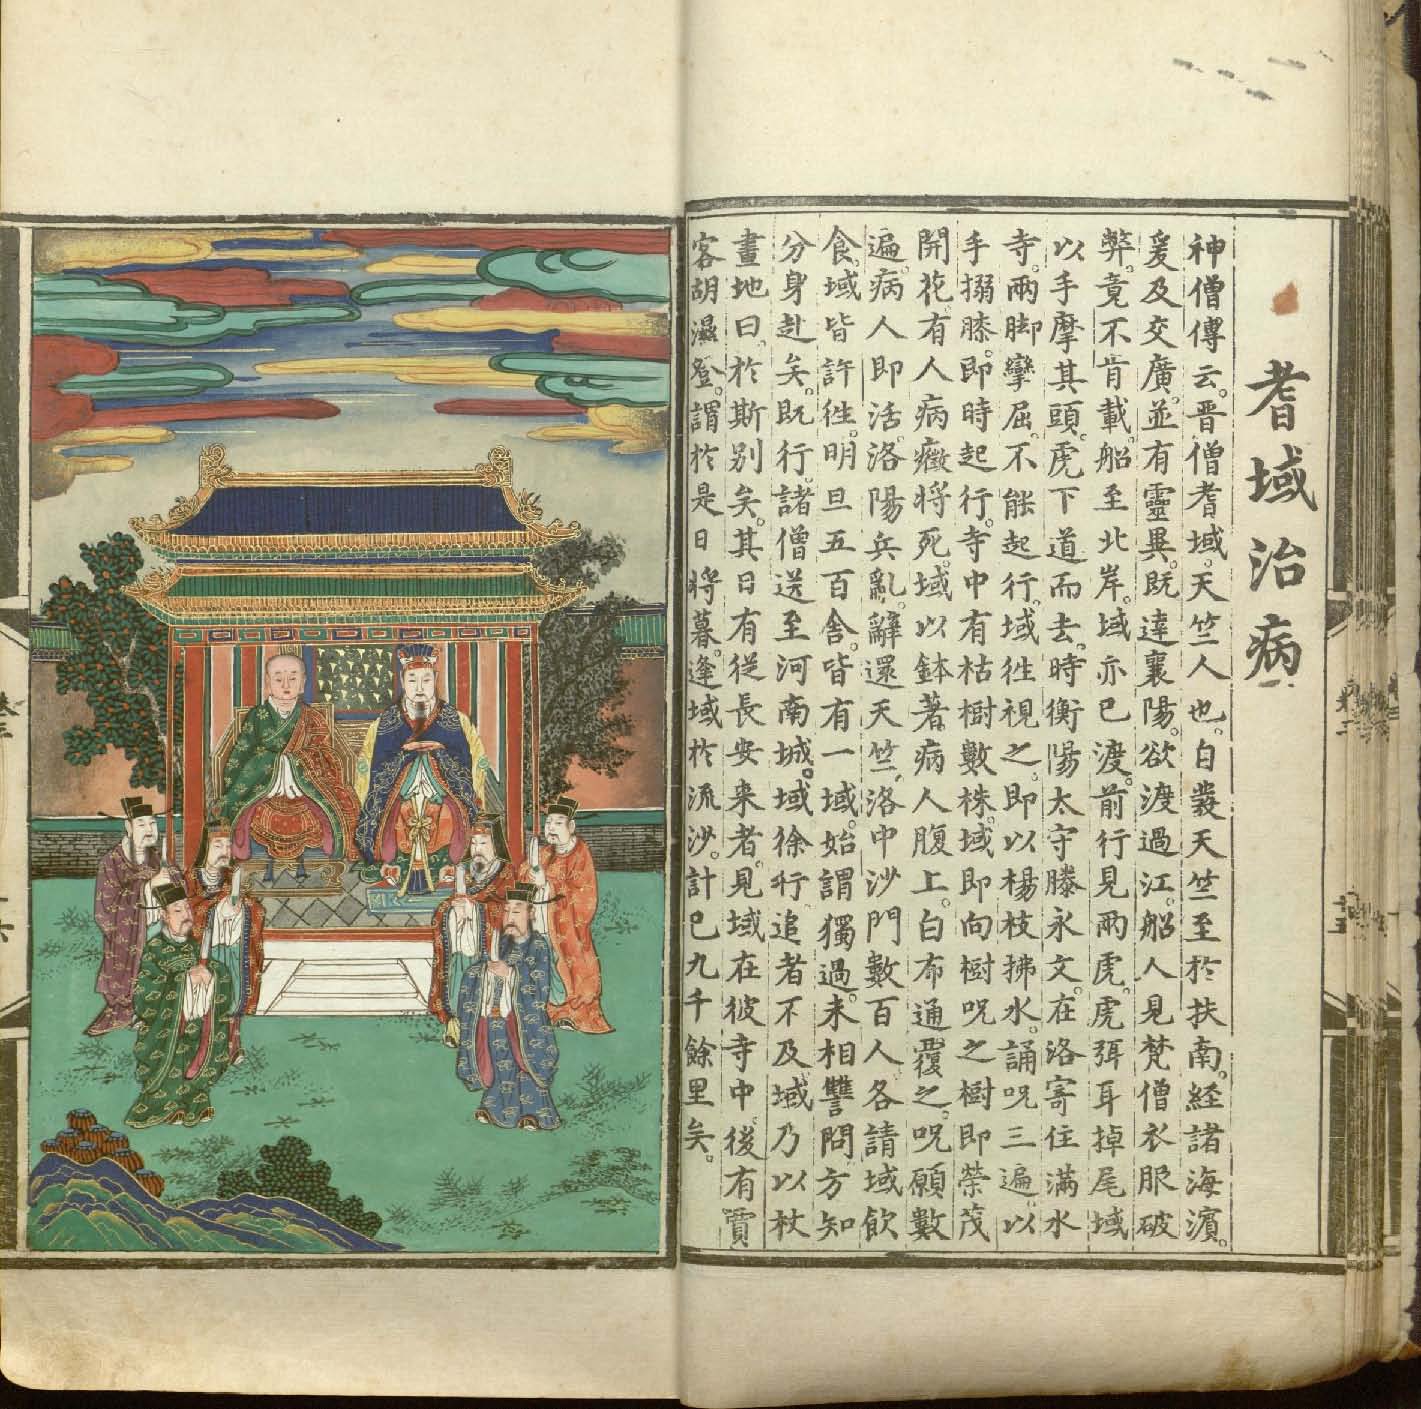 耆域治病
神僧傳云。晋僧耆域。天竺人也。自發天竺至於扶南。経諸海濱。
爰及交廣。並有靈異。既達襄陽。欲渡過江。船人見梵僧衣服破
弊。竟不肯載。船至北岸。域亦已渡。前行見兩虎。虎弭耳掉尾域
以手摩其頭。虎下道而去。時衡陽太守滕永文。在洛寄住滿水
寺。兩脚攣屈。不能起行。域徃視之。即以楊枝拂水。誦呪三遍。以
手搦膝。即時起行。寺中有枯樹數株。域即向樹呪之樹即榮茂
開花。有人病癥将死。域以鉢著病人腹上。白布通覆之。呪願數
遍。病人即活。洛陽兵亂。辭還天竺。洛中沙門數百人。各請域飲
食。域皆許徃。明旦五百舍。皆有一域。始謂獨過。末相讐問。方知
分身赴矣。既行。諸僧送至河南城。域徐行。追者不及。域乃以杖
畫地曰。於斯别矣。其日有從長安来者。見域在彼寺中。後有賈
客胡濕登。謂於是日将暮。逢域於流沙。計已九千餘里矣。